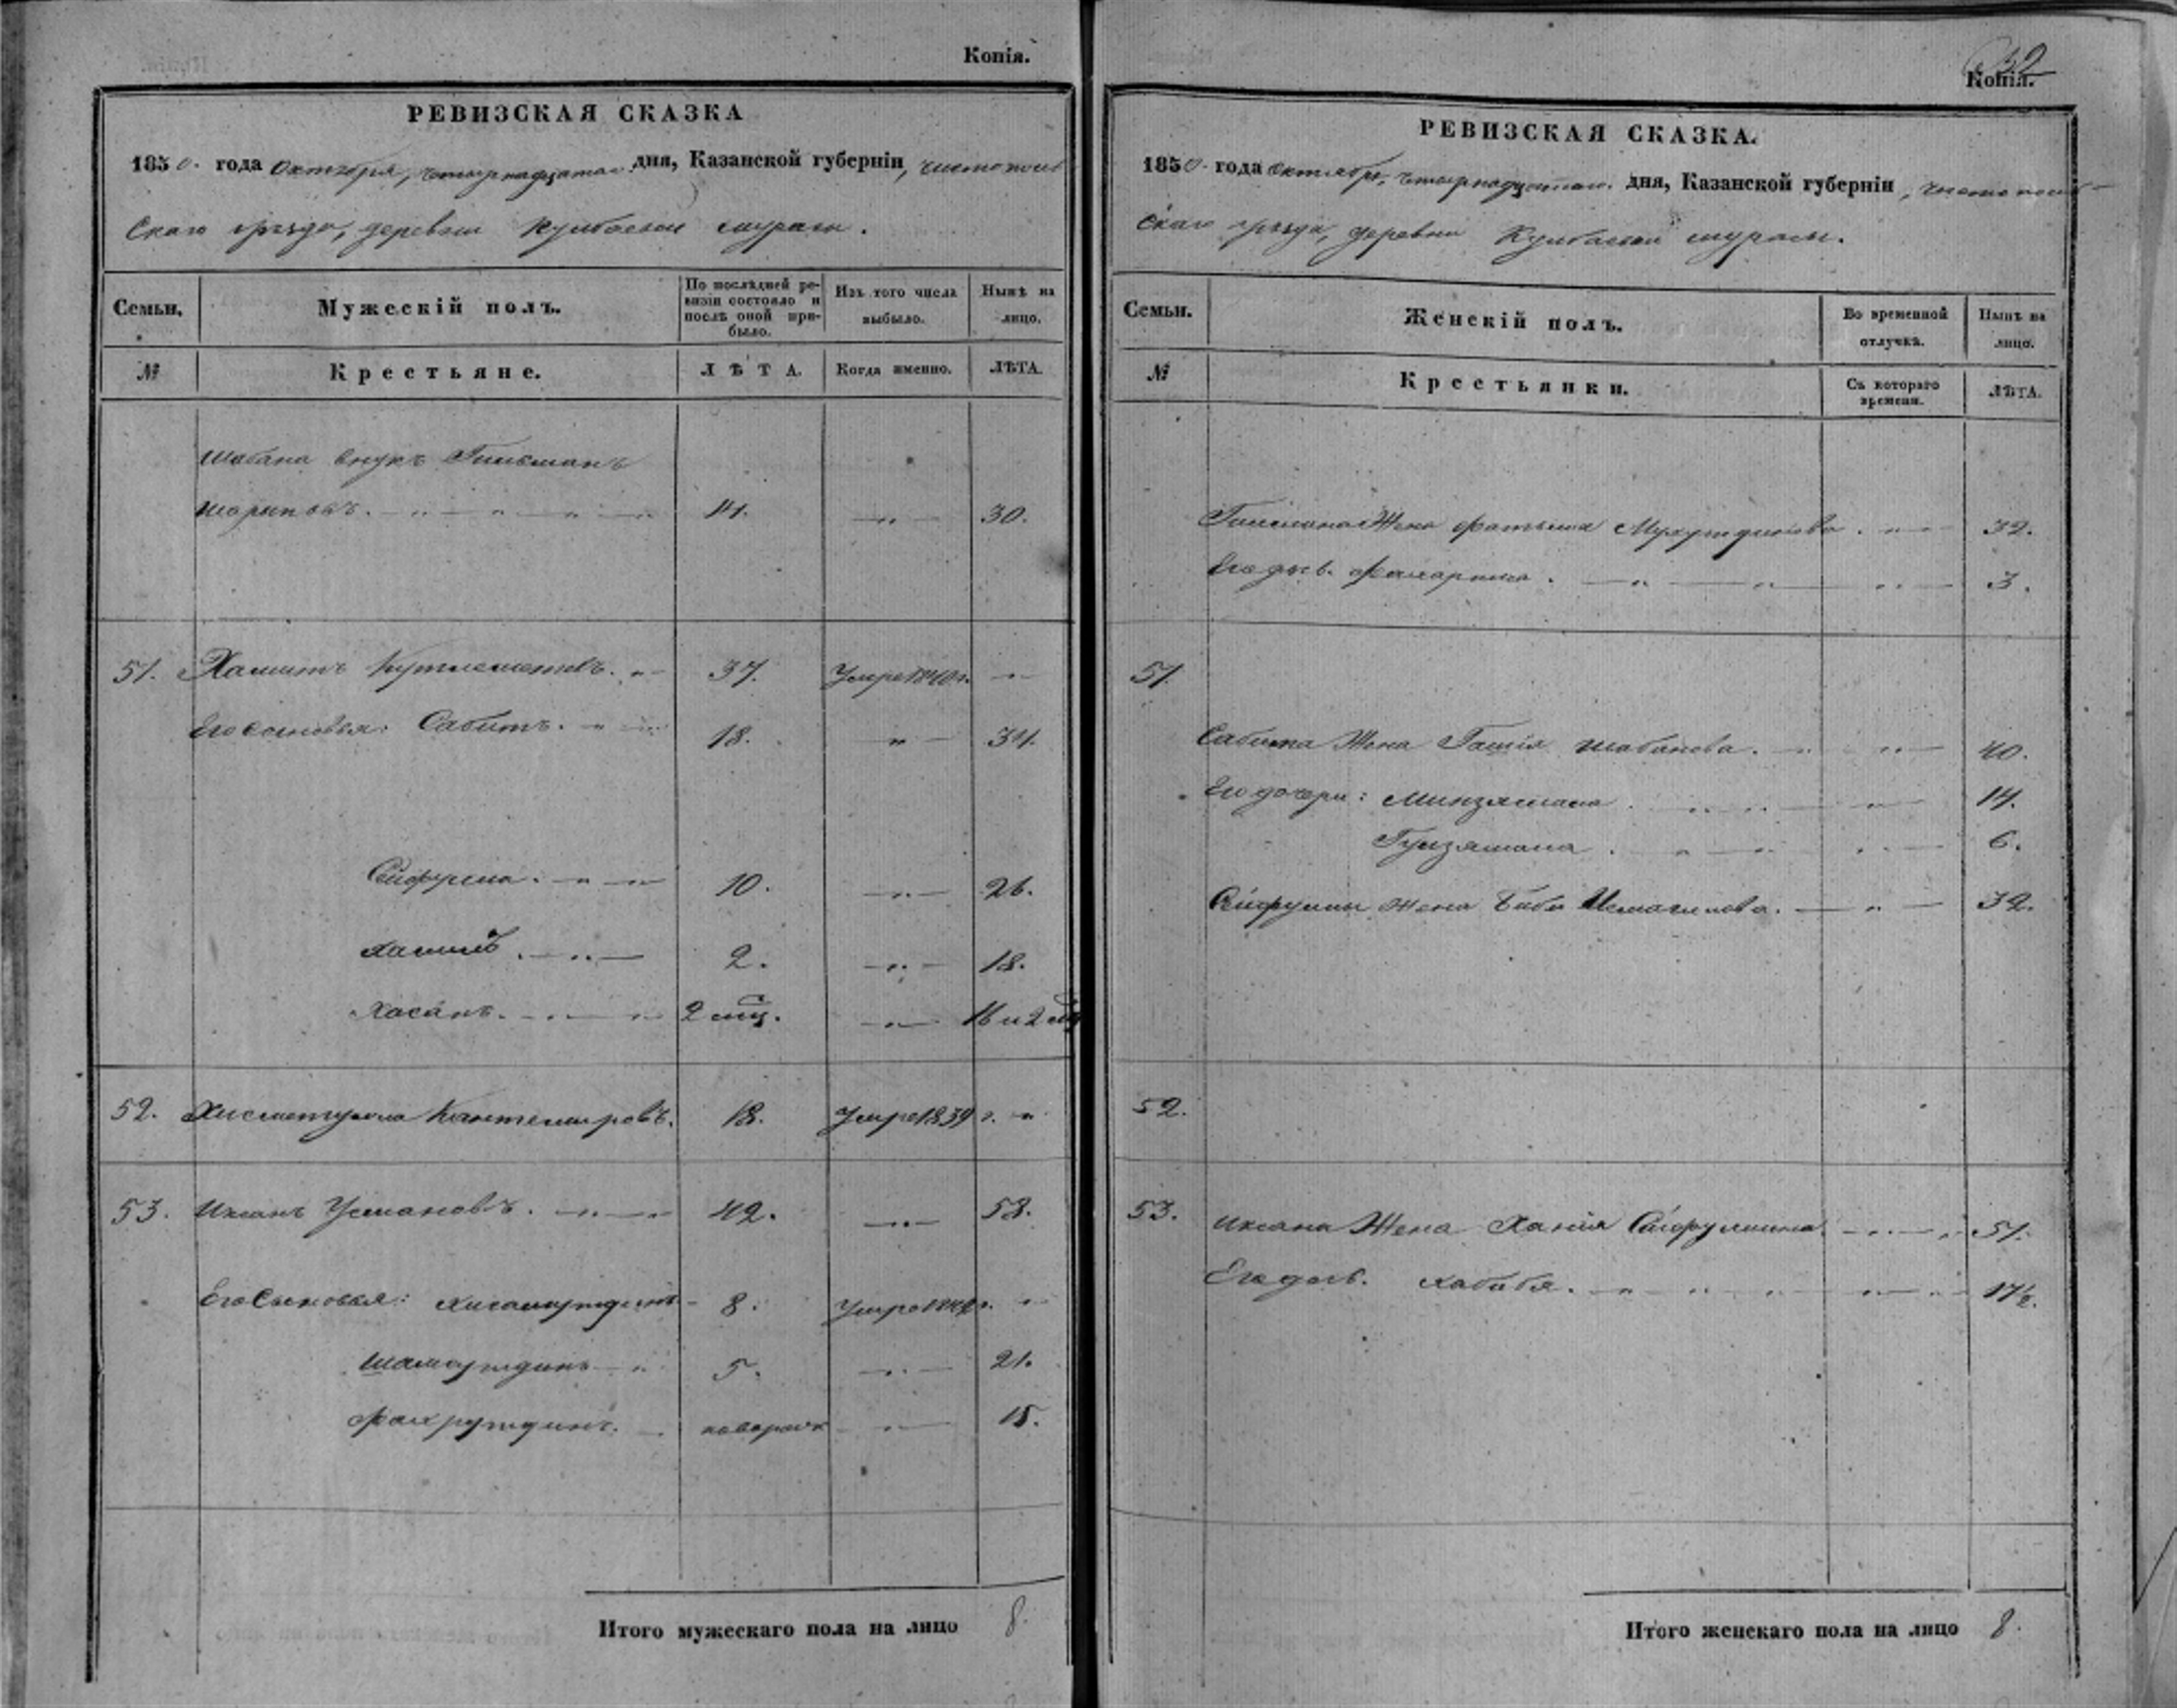 Копія.
РЕВИЗСКАЯ СКАЗКА
1850. года Октября, четырнадцатаго дня, Казанской губерніи, чистополь
скаго уѣзда, деревни Кулбаевой мурасы.
Семьи.
Мужескій полъ.
По послѣдней ревизіи состояло и послѣ оной прибыло.
Изъ того числа выбыло.
Нынѣ на лицо.
№
Крестьяне.
ЛѢТА.
Когда именно.
ЛѢТА.
Шабана внукъ
Шариповъ. 14. 30.
51. Хамитъ Кутлеметевъ. 37. Умре 1840 г.
Его сыновья: Сабитъ. 18. 34.
Сейфулла. 10. 26.
2. 18.
Хасанъ. 2 мц. 16 и 2 мц
52. Хисметулла Кантемировъ. 18. Умре 1839 г.
53. Ихсанъ Усмановъ. 42. 58.
Его Сыновья: Хисамутдинъ 8. Умре г.
Шамсутдинъ 5. 21.
Фахрутдинъ. новорож 15.
Итого мужескаго пола на лицо 8.
Копія.
РЕВИЗСКАЯ СКАЗКА.
1850. года октября, четырнадцатаго дня, Казанской губерніи, чистополь-
скаго уѣзда, деревни Кулбаевой мурасы.
Семьи.
Женскій полъ.
Во временной отлучкѣ.
Нынѣ на лицо.
№
Крестьянки.
Съ котораго времени.
ЛѢТА.
Жена Фатыма Мухутдинова. 32.
Его дочь. 3.
51.
Сабита Жена Гашія Шабанова. 40.
Его дочери: Минзямала. 14.
Гулзямала. 6.
Сейфуллы жена Биби Исмагилова. 32.
52.
53. Ихсана Жена Хания Сайфуллина. 51.
Его дочь. Хабибя. 17½.
Итого женскаго пола на лицо 8.